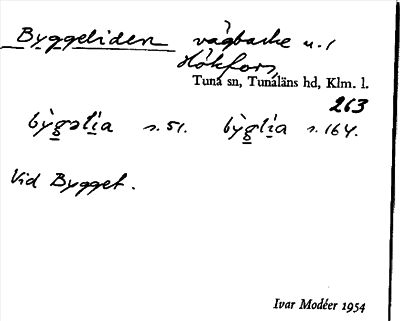 Byggeliden vägbacke u. /
Hökfors,
Tuna sn, Tunaläns hd, Klm. l.
263
bỳgəlia s. 51. bỳglia s. 164.
Vid Bygget.
Ivar Modéer 1954